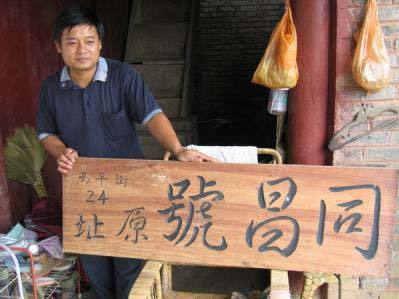 同昌號
昇平街
24
原址